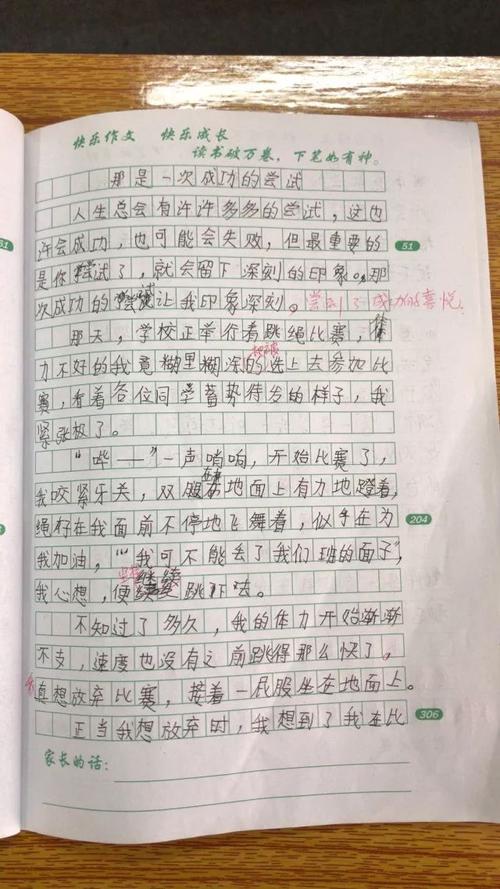 快乐作文 快乐成长
读书破万卷,下笔如有神。
那是一次成功的尝试
人生总会有许许多多的尝试,这也
许会成功,也可能会失败,但最重要的
是你尝试了,就会留下深刻的印象。那
次成功的尝试让我印象深刻。尝到了成功的喜悦
那天,学校正举行着跳绳比赛,体
力不好的我竟糊里糊涂的被选上去参加比
赛,看着各位同学蓄势待发的样子,我
紧张极了。
“哔——”一声哨响,开始比赛了,
我咬紧牙关,双腿在地面上有力地蹬着,
绳仔在我面前不停地飞舞着,似乎在为
我加油,“我可不能丢了我们班的面子”,
我心想,便继续跳下去。
不知过了多久,我的体力开始渐渐
不支,速度也没有之前跳得那么快了,
真想放弃比赛,接着一屁股坐在地面上。
正当我想放弃时,我想到了我在比
家长的话:
51
204
306
51